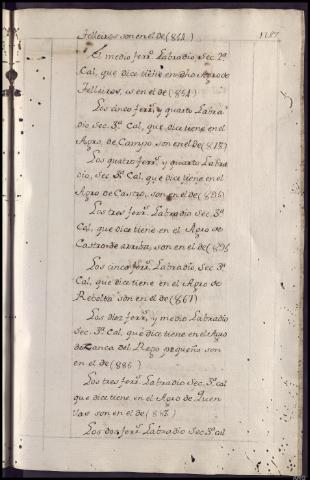 Felleiros son en el de (854)
El medio ferr.º Labradio, Sec. 2.ª
Cal, que dice tiene en dho Agro de
Felleiros, es en el de (854)
Los cinco ferr.s y quarto Labra
dio Sec. 3.ª Cal, que dice tiene en el
Agro de Campo son en el de
Los quatro ferr.s y quarto Labra
dio, Sec. 3.ª Cal, que dice tiene en el
Agro de Castro, son en el de (896)
Los tres ferr.s Labradio Sec. 3.ª
Cal, que dice tiene en el Agro de
Castro de arriba, son en el de (896
Los cinco ferr.s Labradio, Sec. 3.ª
Cal, que dice tiene en el Agro de
Rebolta son en el de (867)
Los diez ferr.s y medio Labradio
Sec. 3.ª Cal, que dice tiene en el Agro
de Lanca del Rego pequeño son
en el de (886)
Los tres ferr.s Labradio Sec. 3.ª cal
que dice tiene en el Agro de Quen
las son en el de
Los dos ferr.s Labradio Sec. 3.ª cal